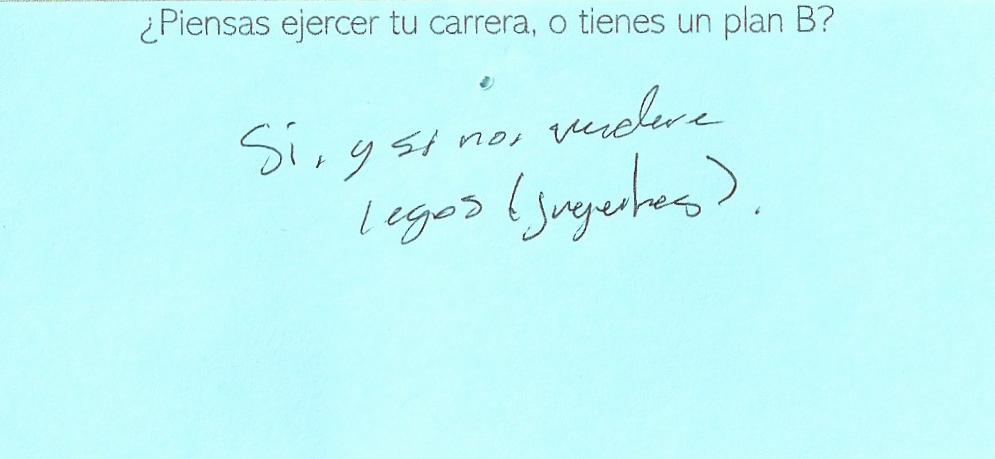 ¿Piensas ejercer tu carrera, o tienes un plan B?
Si, y si no, vendere
legos (juguetes).